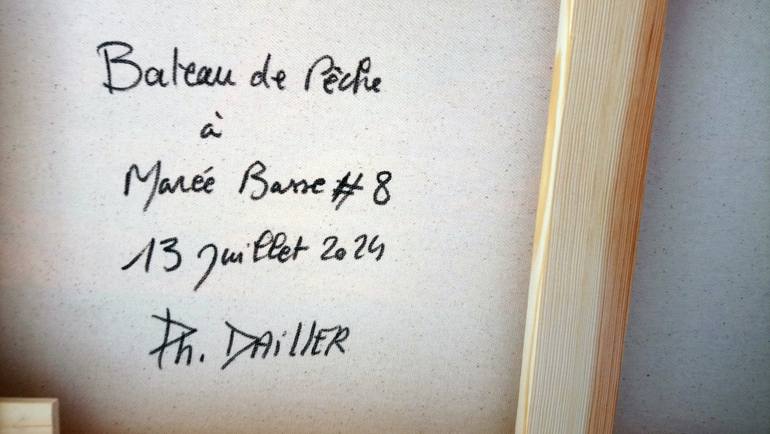 Bateau de Pêche
à
Marée Basse #8
13 Juillet 2024
Ph. DAILLER